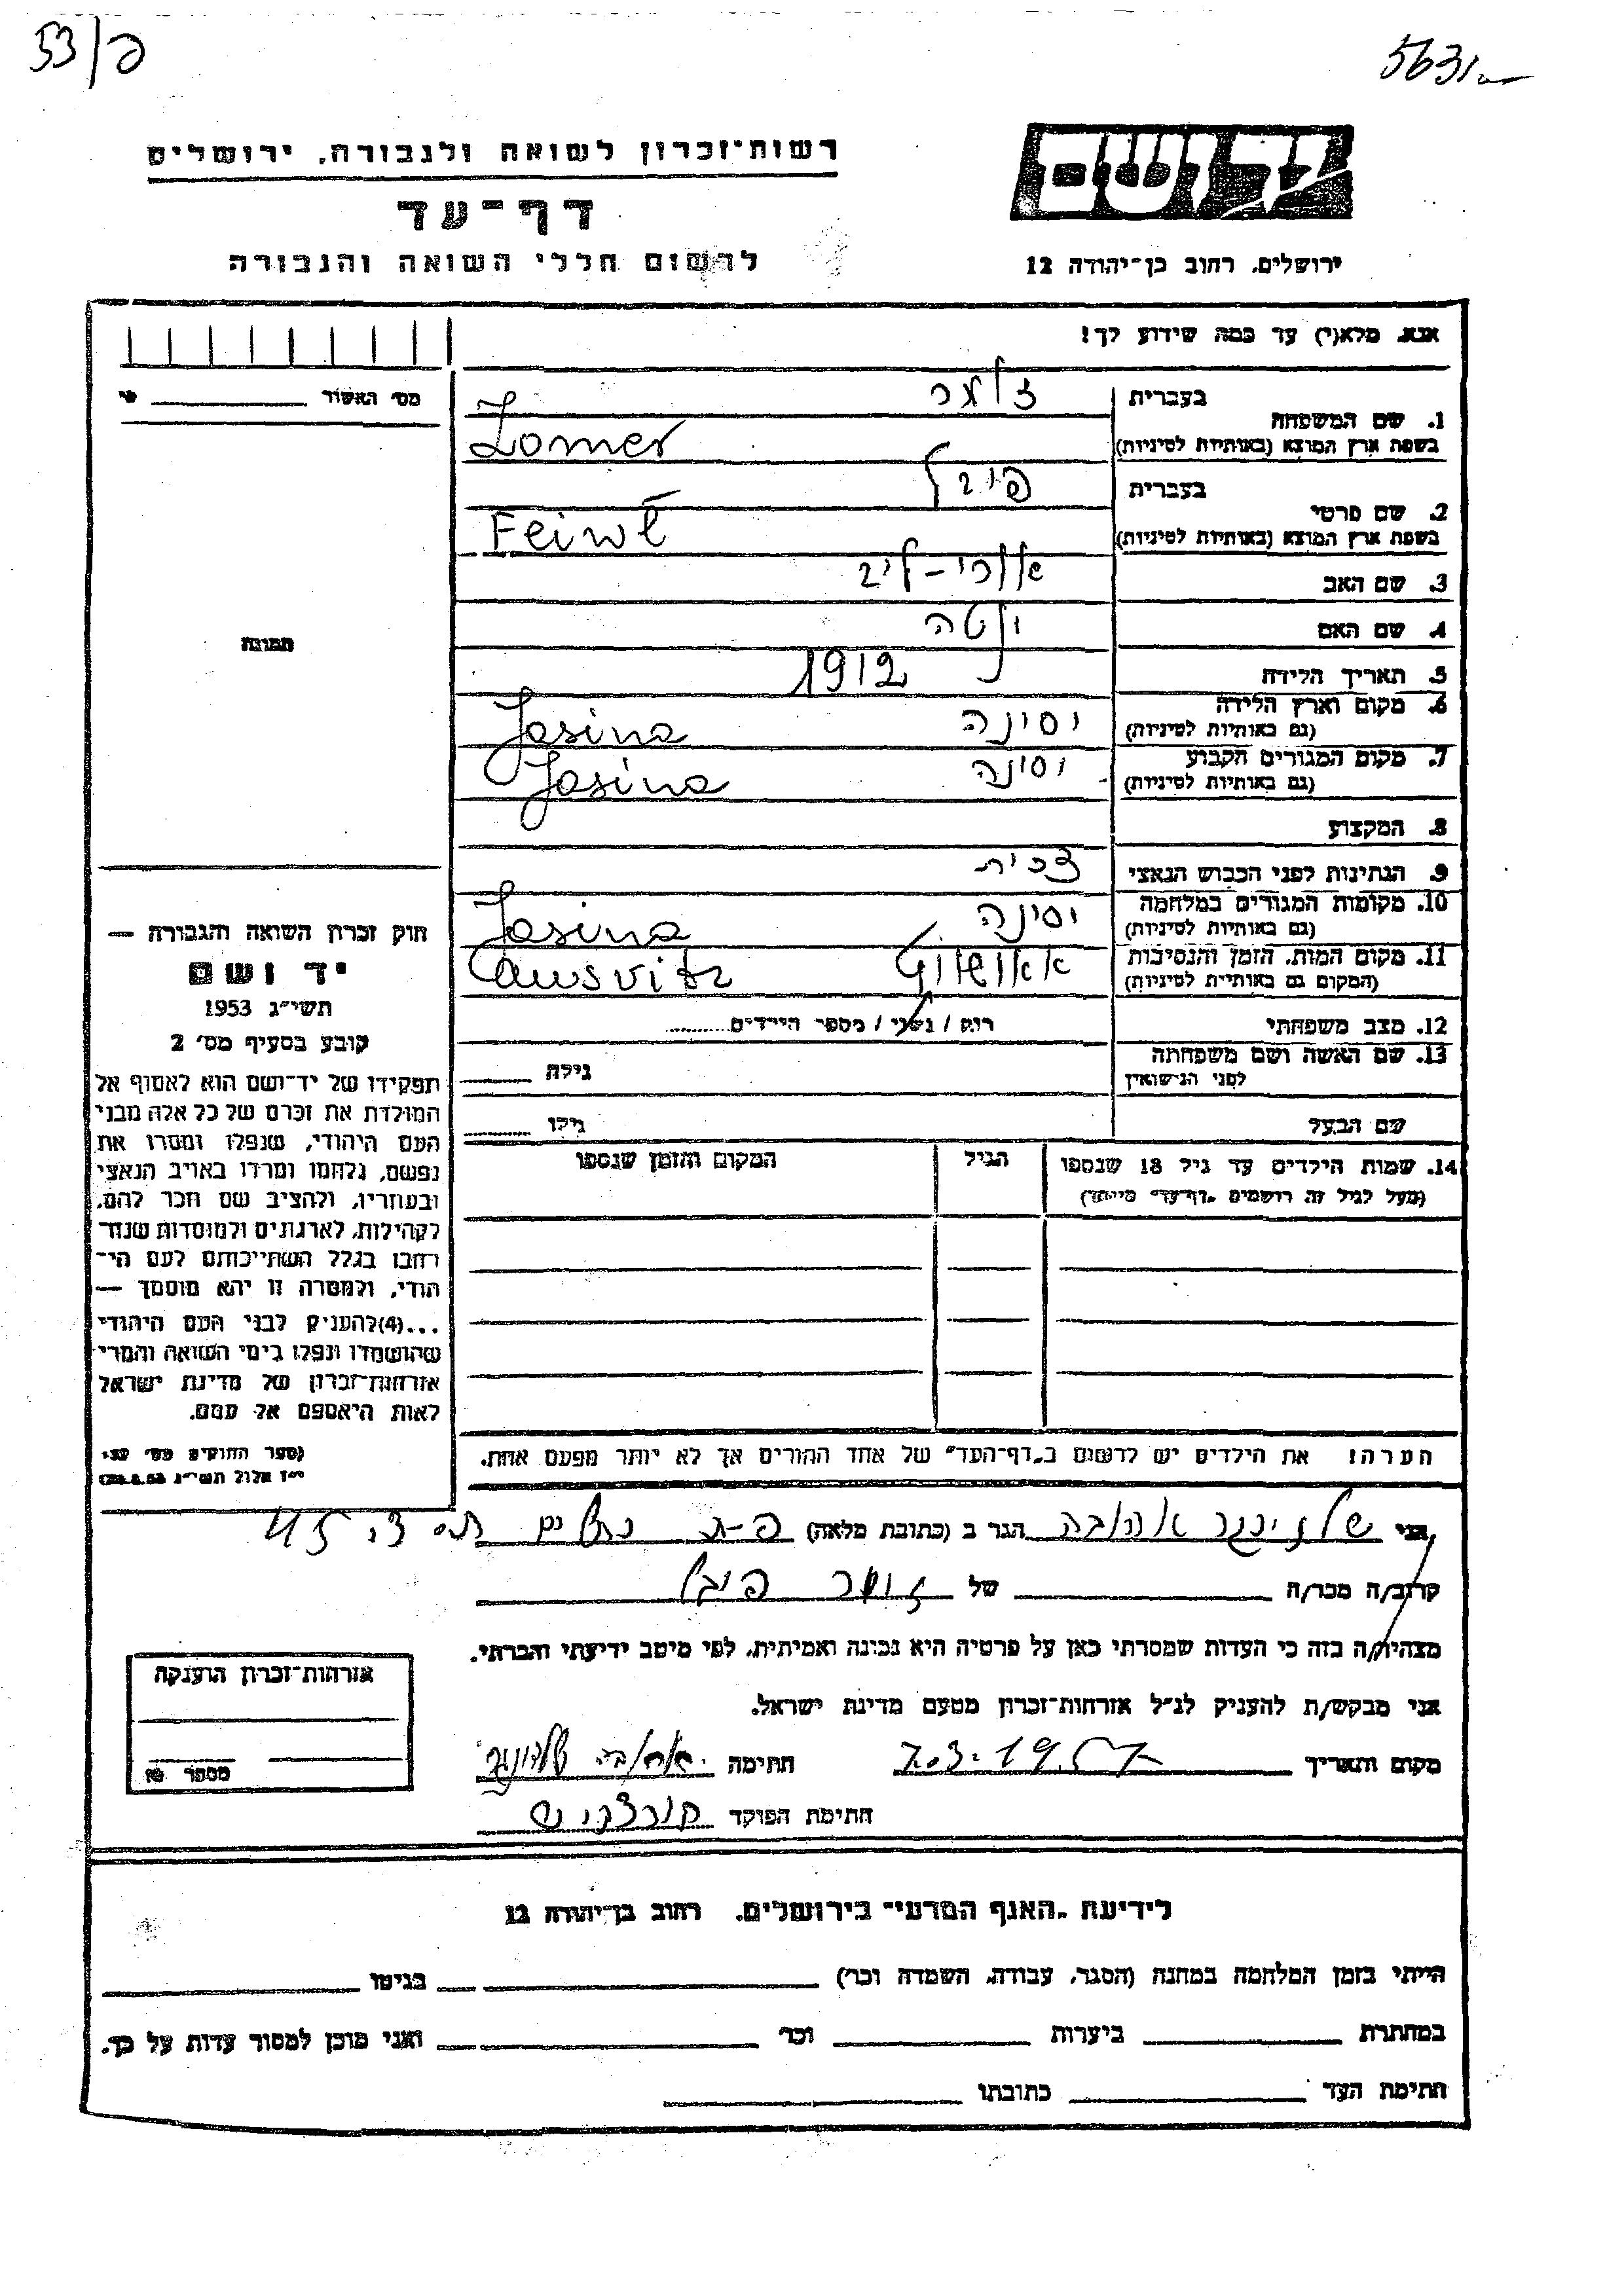 53/פ
5631
רשות־זכרון לשואה ולגבורה, ירושלים
דף־עד
לרשום חללי השואה והגבורה
יד ושם
ירושלים, רחוב בן־יהודה 12
אנא, מלא(י) עד כמה שידוע לך!
מס׳ האשור
1. שם המשפחה
בעברית
זומר
בשפת ארץ המוצא (באותיות לטיניות)
Zomer
2. שם פרטי
בעברית
פיבל
בשפת ארץ המוצא (באותיות לטיניות)
Feiwel
3. שם האב
אורי-ליב
4. שם האם
יטה
5. תאריך הלידה
1912
6. מקום וארץ הלידה
(גם באותיות לטיניות)
יסינה
Jasina
7. מקום המגורים הקבוע
(גם באותיות לטיניות)
יסינה
Jasina
8. המקצוע
9. הנתינות לפני הכבוש הנאצי
צ׳כית
10. מקומות המגורים במלחמה
(גם באותיות לטיניות)
יסינה
Jasina
11. מקום המות, הזמן והנסיבות
(המקום גם באותיות לטיניות)
Causvitz
12. מצב משפחתי
רווק / נשוי / מספר הילדים
13. שם האשה ושם משפחתה
לפני הנישואין
גילה
שם הבעל
גילו
14. שמות הילדים עד גיל 18 שנספו
(מעל לגיל זה רושמים „דף־עד״ מיוחד)
הגיל
המקום והזמן שנספו
הערה: את הילדים יש לרשום ב„דף־העד״ של אחד ההורים אך לא יותר מפעם אחת.
תמונה
חוק זכרון השואה והגבורה —
יד ושם
תשי״ג 1953
קובע בסעיף מס׳ 2
תפקידו של יד־ושם הוא לאסוף אל
המולדת את זכרם של כל אלה מבני
העם היהודי, שנפלו ומסרו את
נפשם, נלחמו ומרדו באויב הנאצי
ובעוזריו, ולהציב שם וזכר להם,
לקהילות, לארגונים ולמוסדות שנח־
רבו בגלל השתייכותם לעם הי־
הודי, ולמטרה זו יהא מוסמך —
...(4)להעניק לבני העם היהודי
שהושמדו ונפלו בימי השואה והמרי
אזרחות־זכרון של מדינת ישראל
לאות היאספם אל עמם.
(ספר החוקים מס׳ 132
י״ז אלול תשי״ג 28.8.53)
אני שלזינגר אהובה הגר ב (כתובת מלאה)
ת.ד. 45
קרוב/ה מכר/ה של זומר פיבל
מצהיר/ה בזה כי העדות שמסרתי כאן על פרטיה היא נכונה ואמיתית, לפי מיטב ידיעתי והכרתי.
אני מבקש/ת להעניק לנ״ל אזרחות־זכרון מטעם מדינת ישראל.
מקום ותאריך 7.3.1957 חתימה אהובה שלזינגר
חתימת הפוקד
אזרחות־זכרון הוענקה
מספר
לידיעת „האגף המדעי״ בירושלים, רחוב בן־יהודה 12
הייתי בזמן המלחמה במחנה (הסגר, עבודה, השמדה וכו׳) בגיטו
במחתרת ביערות וכו׳ ואני מוכן למסור עדות על כך.
חתימת העד כתובתו